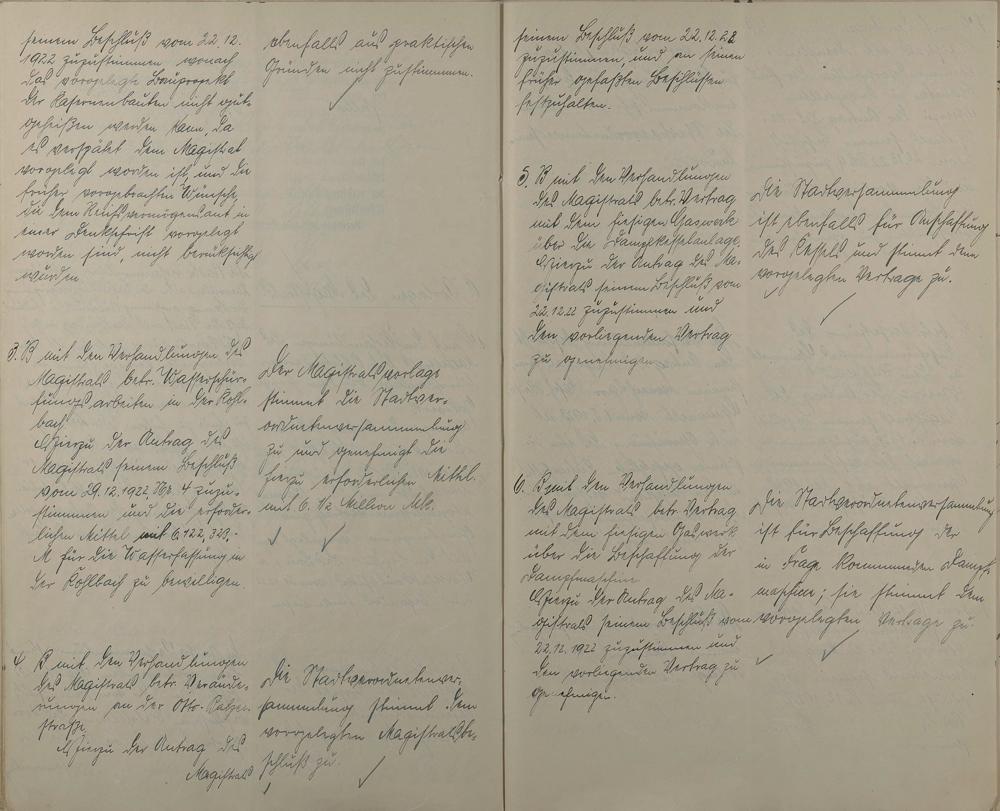 seinem Beschluß vom 22.12.
1922 zuzustimmen wonach
das vorgelegte Bauprojekt
der Kasernenbauten nicht gut-
geheißen werden kann, da
es verspätet dem Magistrat
vorgelegt worden ist, und die
früher vorgebrachten Wünsche,
die dem Reichsvermögensamt in
einer Denkschrift vorgelegt
worden sind, nicht berücksichtigt
wurden
ebenfalls aus praktischen
Gründen nicht zustimmen.
3. B mit den Verhandlungen des
Magistrats betr. Wasserschür-
fungsarbeiten in der Kohl-
bach
Hierzu der Antrag des
Magistrats seinem Beschluß
vom 29.12.1922, Nr. 4 zuzu-
stimmen und die erforder-
lichen Mittel mit 6 122, 323,-
M für die Wasserfassung in
der Kohlbach zu bewilligen
Der Magistratsvorlage
stimmt die Stadtver-
ordnetenversammlung
zu und genehmigt die
hierzu erforderlichen Mittel
mit 6. 1/2 Million Mk.
4. B mit den Verhandlungen
des Magistrats betr. Verände-
rungen an der Otto-
straße.
Hierzu der Antrag des
Magistrats
Die Stadtverordnetenver-
sammlung stimmt dem
vorgelegten Magistratsbe-
schluß zu.
seinem Beschluß vom 22.12.22
zuzustimmen, und an seinen
früher gefaßten Beschlüssen
festzuhalten.
5. B mit den Verhandlungen
des Magistrats betr. Vertrag
mit dem hiesigen Gaswerk
über die Dampfkesselanlage.
Hierzu der Antrag des Ma-
gistrats seinem Beschluß vom
22.12.22 zuzustimmen und
den vorliegenden Vertrag
zu genehmigen
Die Stadtversammlung
ist ebenfalls für Anschaffung
des Kessels und stimmt dem
vorgelegten Vertrage zu.
6. B mit den Verhandlungen
des Magistrats betr. Vertrag
mit dem hiesigen Gaswerk
über die Beschaffung der
Dampfmaschine
Hierzu der Antrag des Ma-
gistrats seinem Beschluß vom
22.12.1922 zuzustimmen und
den vorliegenden Vertrag zu
genehmigen.
Die Stadtverordnetenversammlung
ist für Beschaffung der
in Frage kommenden Dampf-
maschine; sie stimmt dem
vorgelegten Vertrage zu.